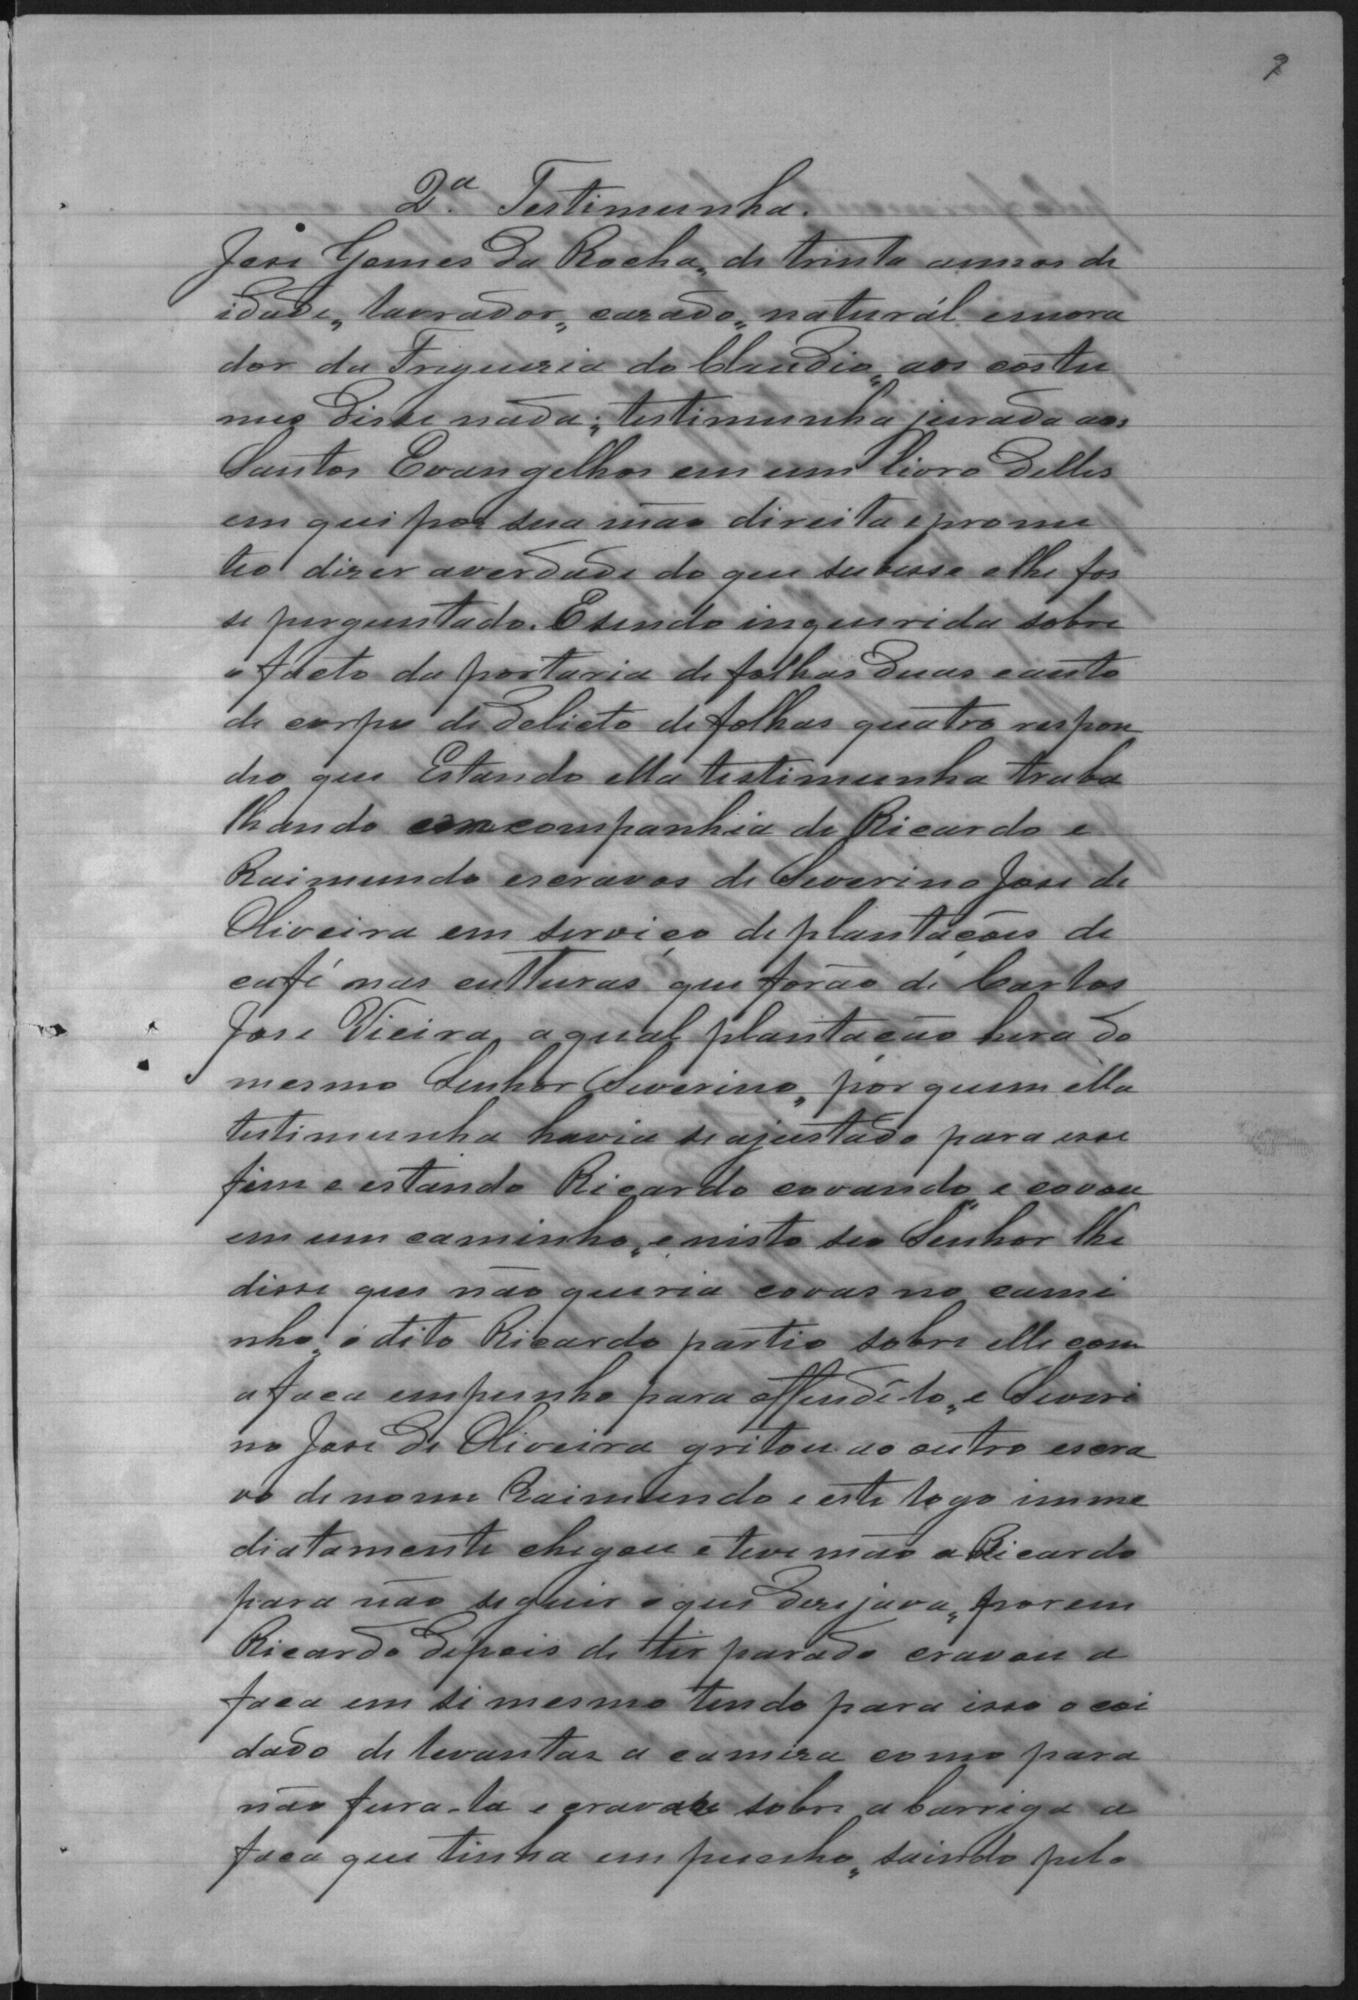 9
2ª Testimunha.
Jose Gomes da Rocha, de trinta annos de
idade, lavrador, cazado, naturál emora
dor da Freguezia do Claudio, aos costu
mes disse nada; testimunha jurada aos
Santos Evangelhos em um livro delles
em que pos sua mão direita eprome
teo dizer averdade do que subesse elhe fos
se perguntado. Esendo inquerida sobre
o facto da portaria de folhas duas eauto
de corpo de delicto de folhas quatro respon
deo que Estando ella testimunha traba
lhando em companhia de Ricardo e
Raimundo escravos de Severino Jose de
Oliveira em serviço de plantações de
café nas culturas que forão de Carlos
Jose Vieira, aqual plantação hera do
mesmo Senhor Severino, por quem ella
testimunha havia seajustado para esse
fim e estando Ricardo covando, e covou
em um caminho, enisto seo Senhor lhe
disse que não queria covas no cami
nho, o dito Ricardo partio sobre elle com
a faca empunho para offendê-lo, e Severi
no Jose de Oliveira gritou ao outro escra
vo denome Raimundo e este logo imme
diatamente chegou e teve mão a Ricardo
para não seguir o que dezejava, porem
Ricardo depois de ter parado cravou a
faca em si mesmo tendo para isso o coi
dado de levantar a camiza como para
não fura-la e cravou sobre abarriga a
faca que tinha em punho, saindo pelo